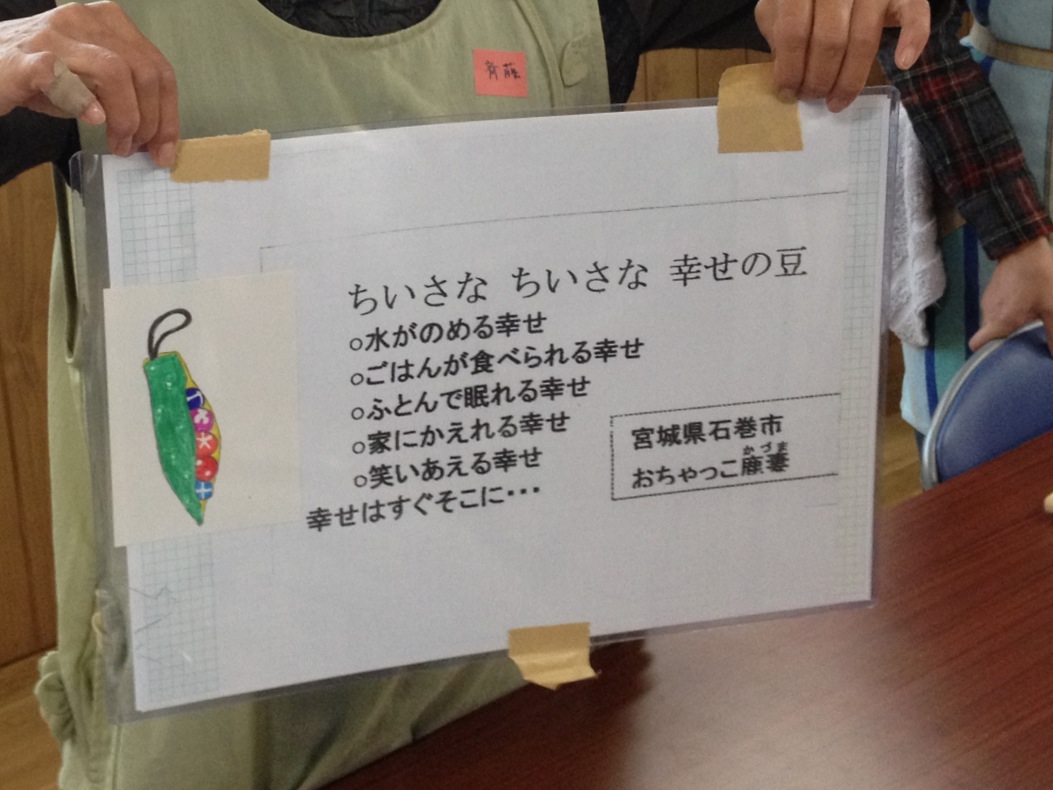 斉藤
ちいさな ちいさな 幸せの豆
○水がのめる幸せ
○ごはんが食べられる幸せ
○ふとんで眠れる幸せ
○家にかえれる幸せ
○笑いあえる幸せ
幸せはすぐそこに・・・
宮城県石巻市
かづま
おちゃっこ鹿妻